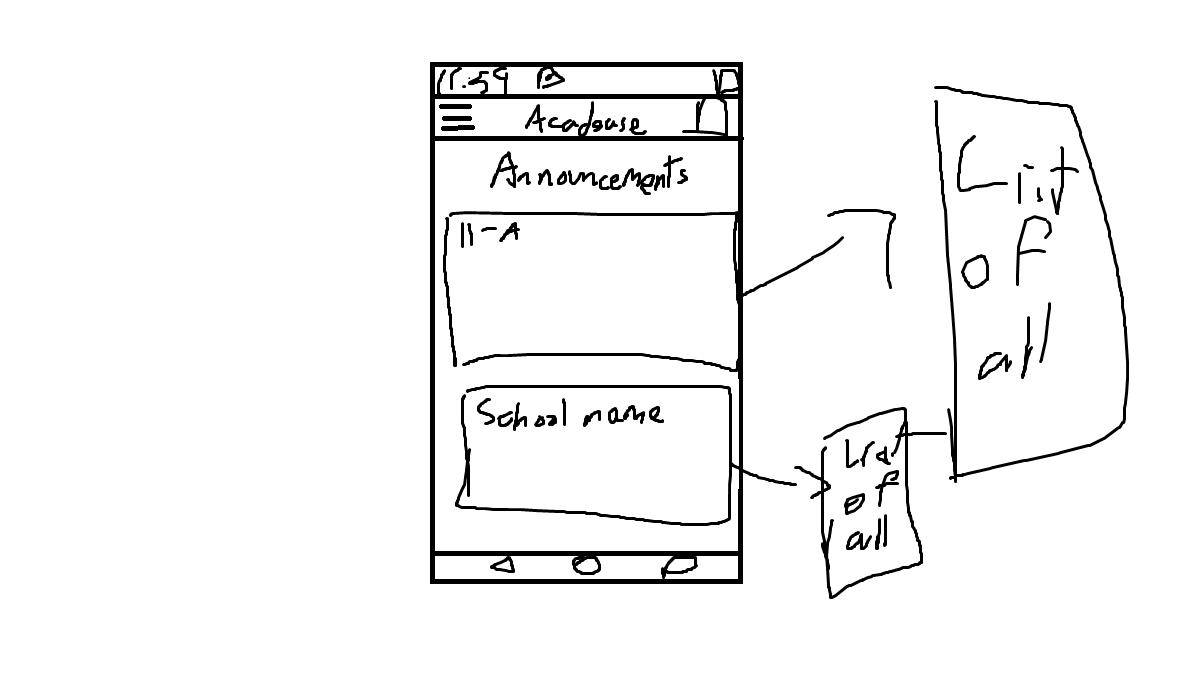 11:59
Acadbase
Announcements
11-A
School name
List
of
all
List
of
all